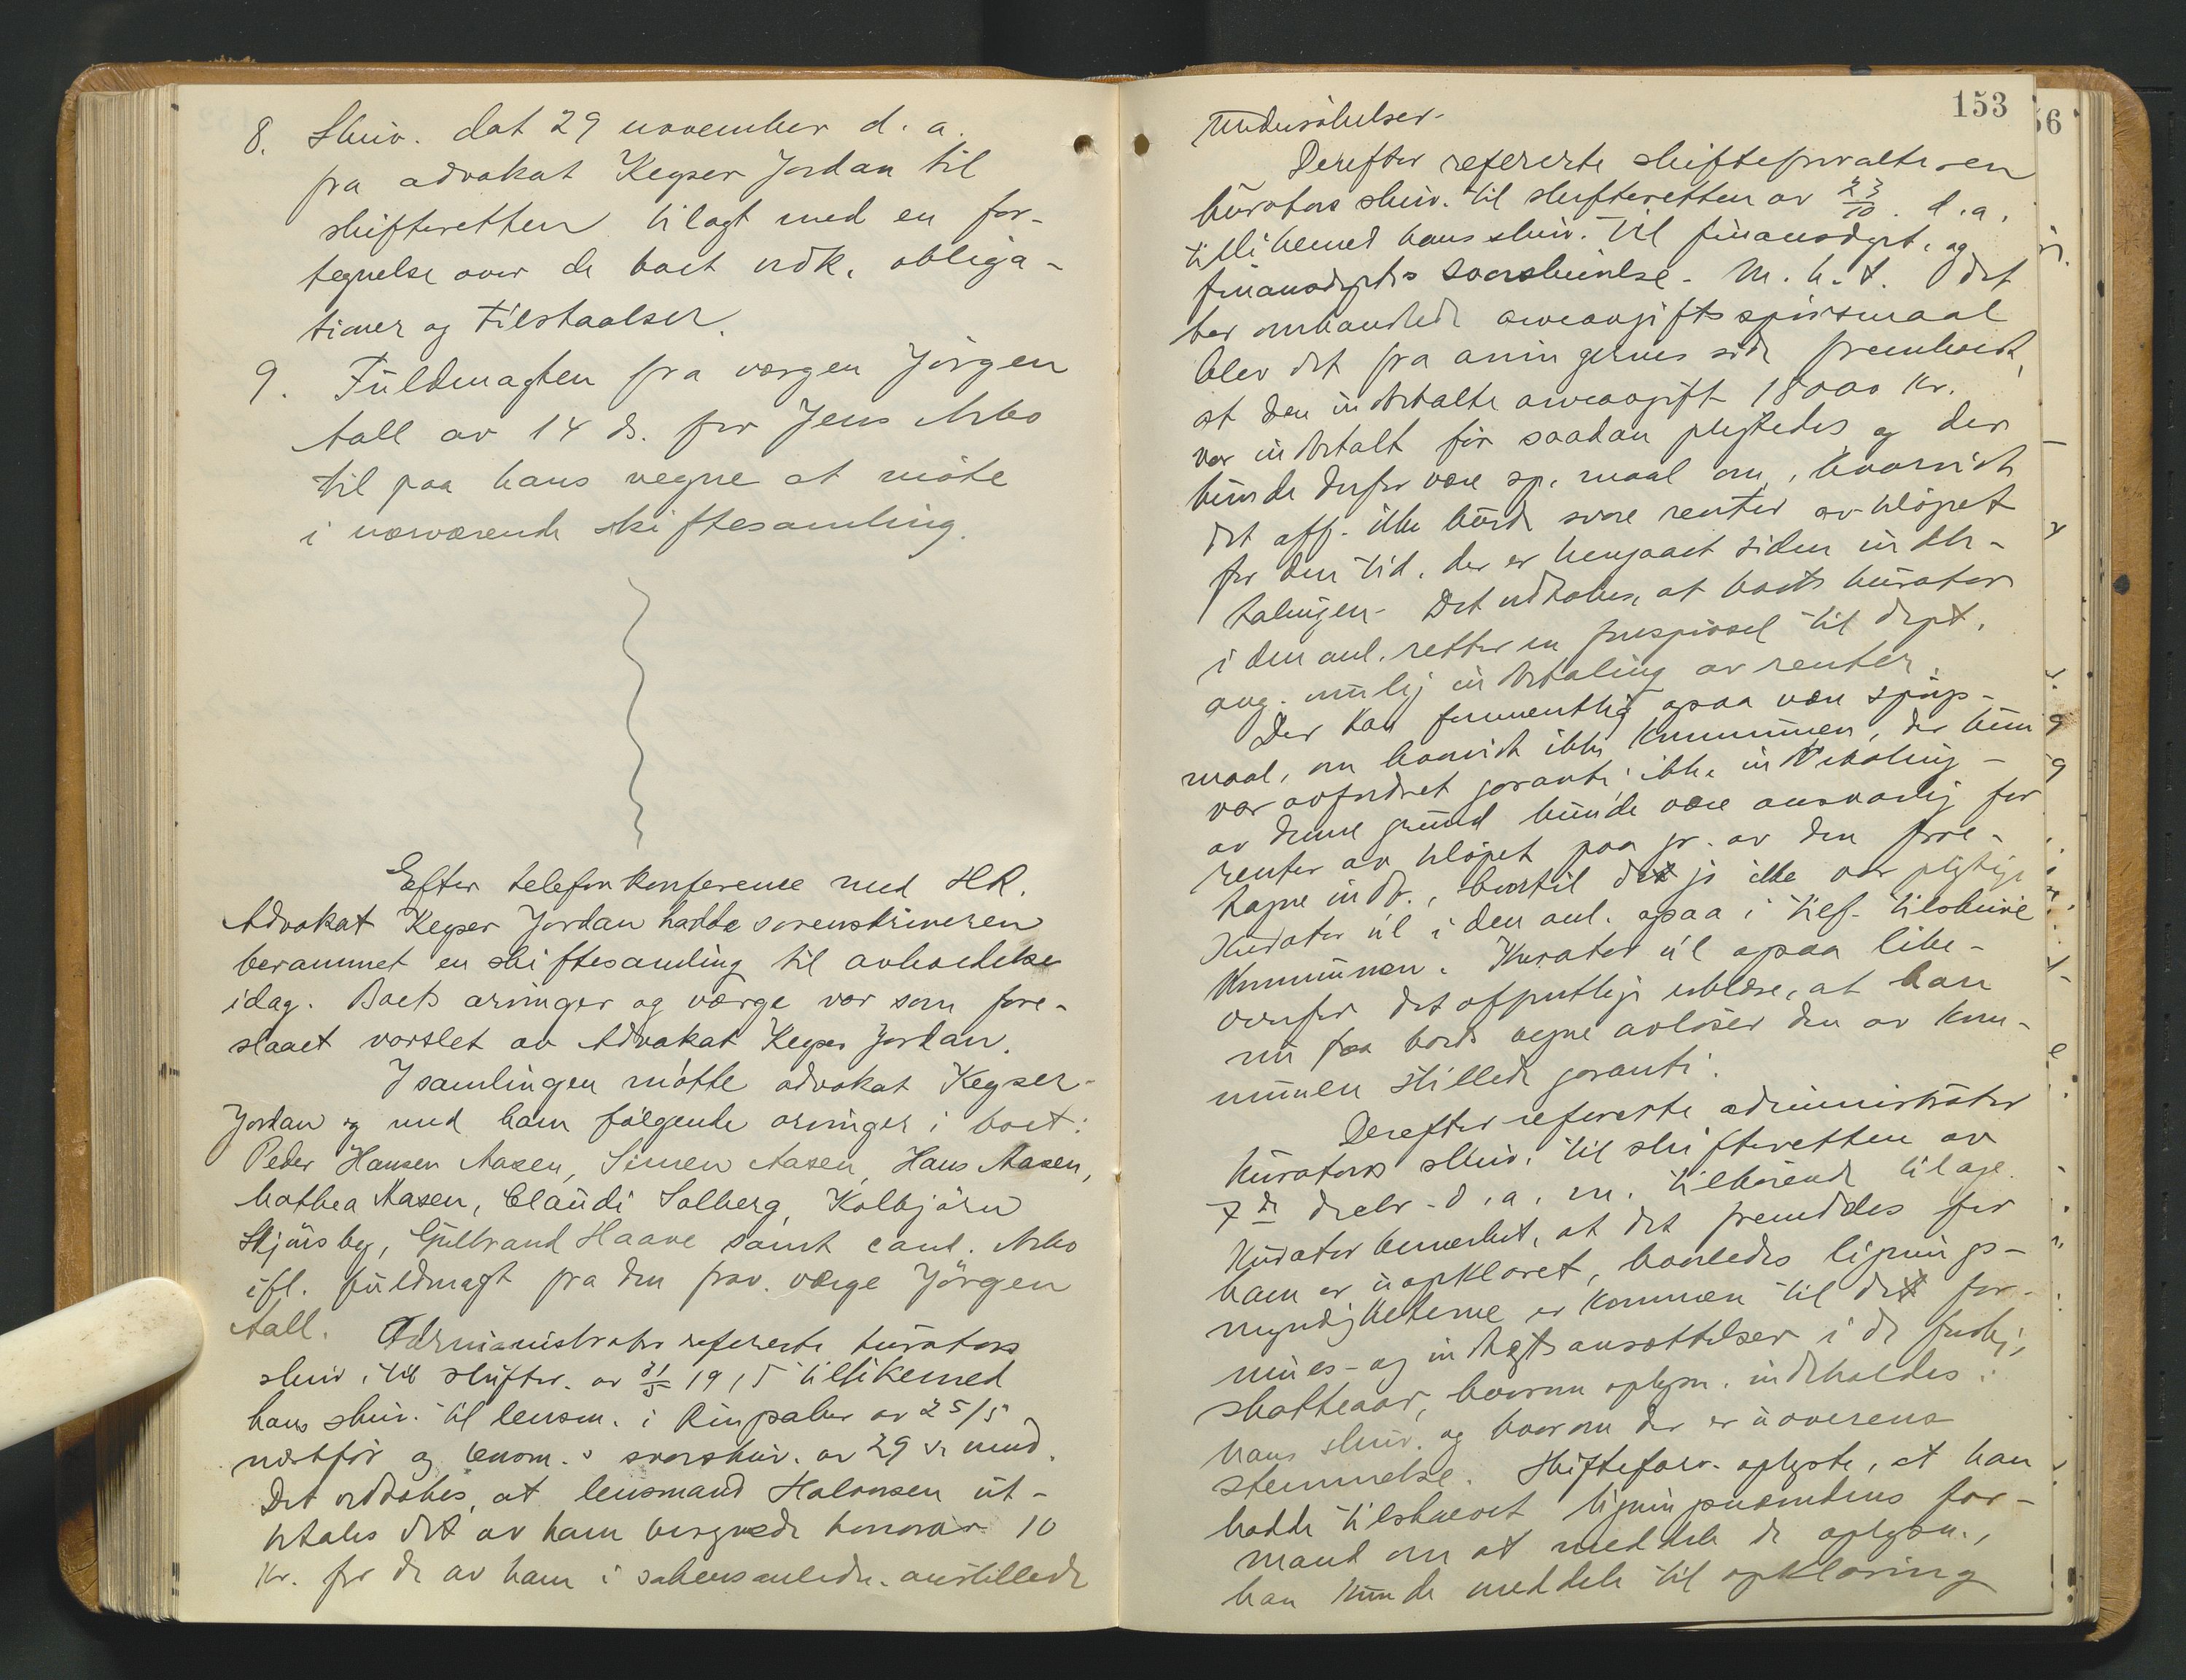 8. Skriv. dat 29 november d. a.
fra advokat Keyser Jordan til
skifteretten bilagt med en for-
tegnelse over de boet vedk. obliga-
tioner og tilstaalser.
9. Fuldmagten fra vergen Jörgen
Aall av 14 ds. for Jens Arbo
til paa hans vegne at möte
i nærværende skiftesamling.
Efter telefonkonference med HR.
Advokat Keyser Jordan hadde sorenskriveren
berammet en skiftesamling til avholdelse
idag. Boets arvinger og værge var som fore-
slaaet varslet av Advokat Keyser Jordan.
I samlingen mötte advokat Keyser-
Jordan og med ham fölgende arvinger i boet:
Peder Hansen Aasen, Simen Aasen, Hans Aasen,
Mathea Aasen, Claudi Solberg, Kolbjörn
Skjörsby, Gulbrand Haave samt cand. Arbo
ifl. fuldmagt fra den frav. værge Jörgen
Aall. Administrator refererte kurators
skriv. til skifter. av 31/5 1915 tillikemed
hans skriv. til lensm. i Ringsaker av 25/5
næstför og lensm.s svarskriv. av 29 s. mnd.
Det vedtokes, at lensmand Halvorsen ut-
betales det av ham beregnede honorar 10
Kr. for de av ham i sakens anledn. anstillede
153
56
undersökelser.
Derefter refererte skifteforvalteren
kurators skriv. til skifteretten av 23/10. d.a.
tillikemed hans skriv. til finansdept. og
finansdepts svarskrivelse. M. h. t. det
her omhandlede arveavgiftsspörsmaal
blev det fra arvingernes side fremholdt,
at den indbetalte arveavgift 18000 kr.
var indbetalt för saadan pligtedes og der
kunde derfor være sp.maal om, hvorvidt
det off. ikke burde svare renter av belöpet
for den tid, der er hengaaet siden indbe-
talingen. Det vedtokes, at boets kurator
i den anl. retter en forespörsel til dept.
ang. mulig indbetaling av renter.
Der kan formentlig ogsaa være spörs-
maal, om hvorvidt ikke kommunen, der kun
var avfordret garanti ikke indbetaling -
av denne grund kunde være ansvarlig for
renter av belöpet paa gr. av den fore-
tagne indb., hvortil det jo ikke var pligtig.
Kurator vil i den anl. ogsaa i tilf. tilskrive
Kommunen. Kurator vil ogsaa like-
overfor det offentlige erklære, at han
nu paa boets vegne avlöser den av kom-
munen stillede garanti.
Derefter refererte administrator
Kurators skriv. til skifteretten av
7de decbr. d. a. m. tilhörende bilage.
Kurator bemerket, at det fremdeles for
ham er uopklaret, hvorledes lignings-
myndigheterne er kommen til det for-
mues- og indtægtsansættelser i de forskj.
skatteaar, hvorom oplysn. indeholdes i
hans skriv. og hvorom der er uoverens
stemmelse. Skifteforv. oplyste, at han
hadde tilskrevet ligningsnævndens for-
mand om at meddele de oplysn.,
han kunde meddele til opklaring